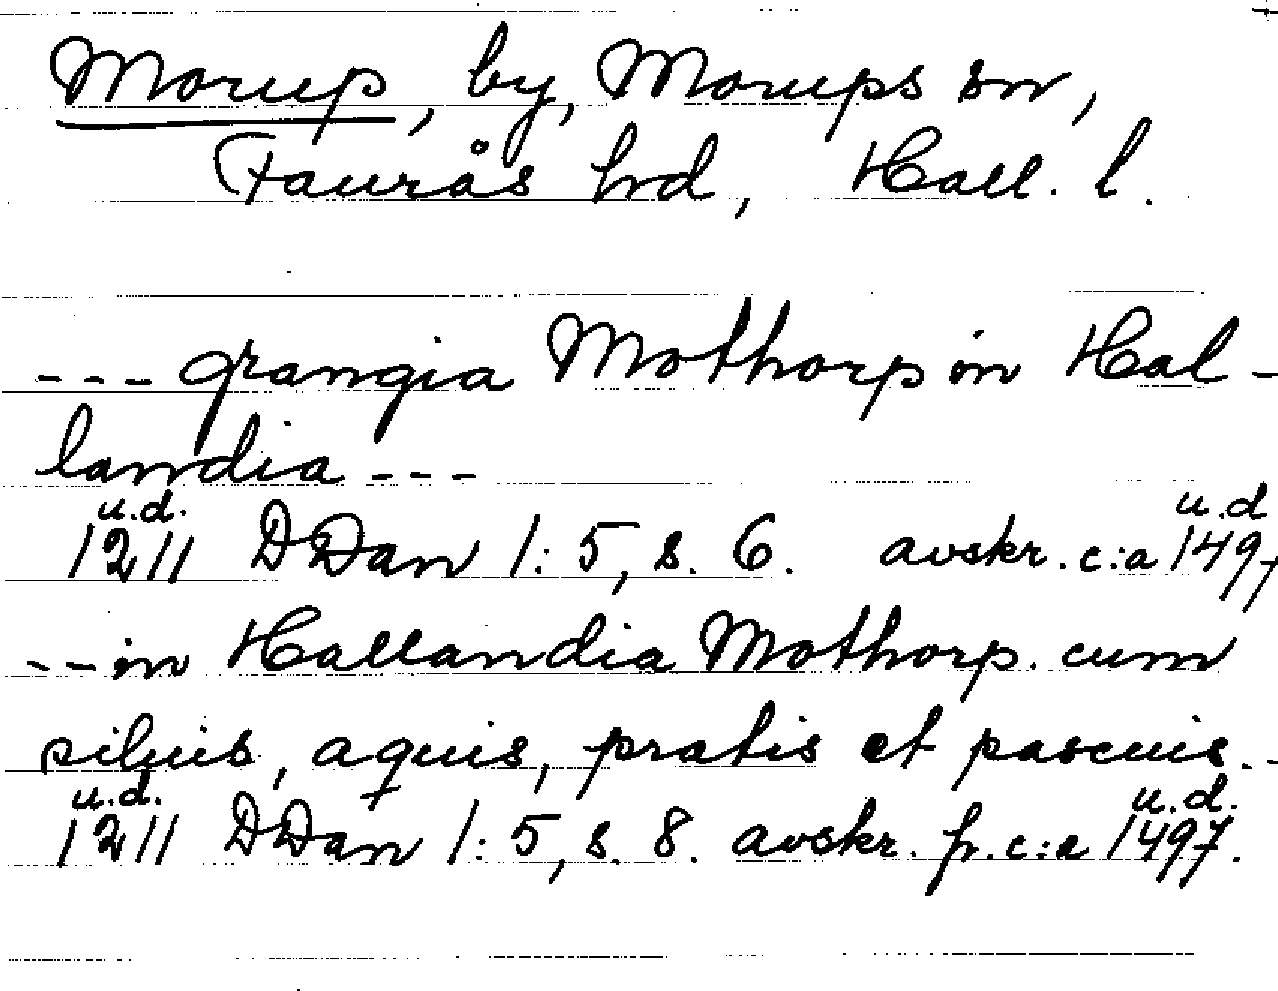 Morup, by, Morups sn,
Faurås hrd, Hall. l.
--- grangia Mothorp in Hal-
landia ---
u.d. u.d
1211 DDan 1:5, s. 6. avskr. c:a 1497
-- in Hallandia Mothorp. cum
siluis, aquis, pratis et pascuis --
u.d. u.d.
1211 DDan 1:5, s. 8. avskr. fr. c:a 1497.